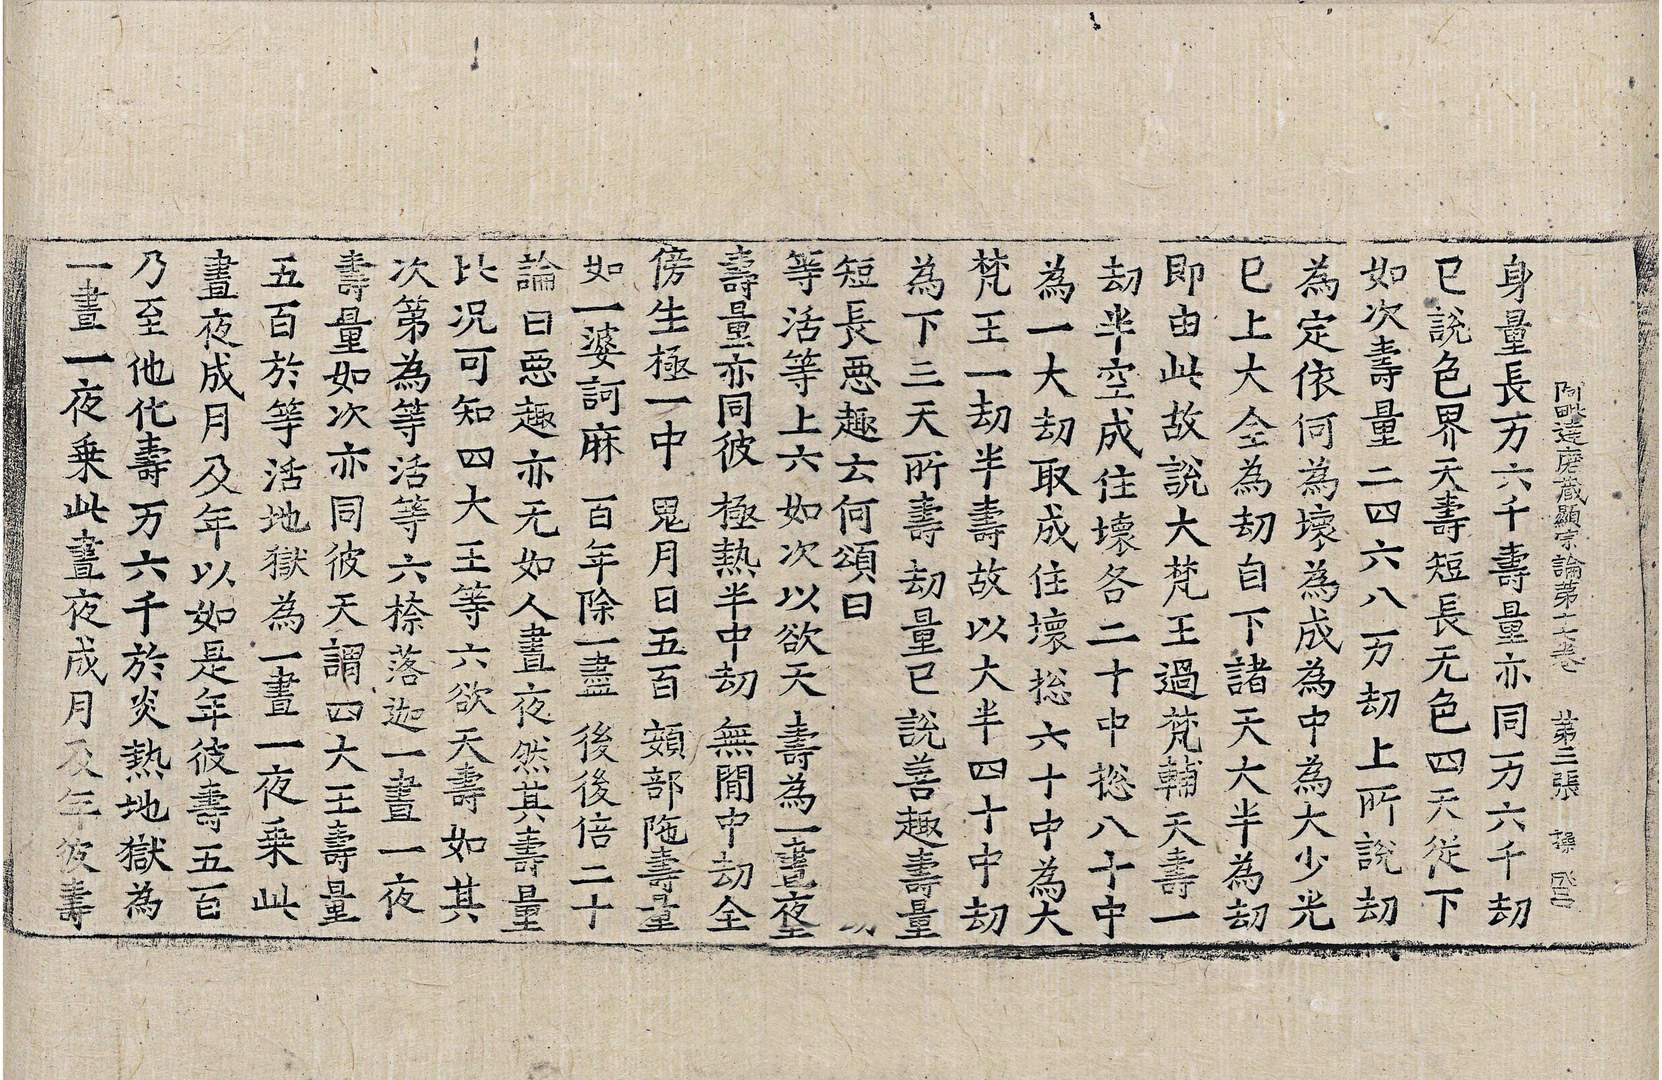 阿毗達磨藏顯宗論第十七卷 第三張 操
身量長万六千壽量亦同万六千劫
已說色界天壽短長无色四天從下
如次壽量二四六八万劫上所說劫
為定依何為壞為成為中為大少光
已上大全為劫自下諸天大半為劫
即由此故說大梵王過梵輔天壽一
劫半空成住壞各二十中揔八十中
為一大劫取成住壞揔六十中為大
梵王一劫半壽故以大半四十中劫
為下三天所壽劫量已說善趣壽量
短長惡趣云何頌曰
等活等上六如次以欲天 壽為一晝夜
壽量亦同彼 極熱半中劫 無間中劫全
傍生極一中 鬼月日五百 頞部陁壽量
如一婆訶麻 百年除一盡 後後倍二十
論曰惡趣亦无如人晝夜然其壽量
比况可知四大王等六欲天壽如其
次第為等活等六捺落迦一晝一夜
壽量如次亦同彼天謂四大王壽量
五百於等活地獄為一晝一夜乗此
晝夜成月及年以如是年彼壽五百
乃至他化壽万六千於炎熱地獄為
一晝一夜乗此晝夜成月及年彼壽